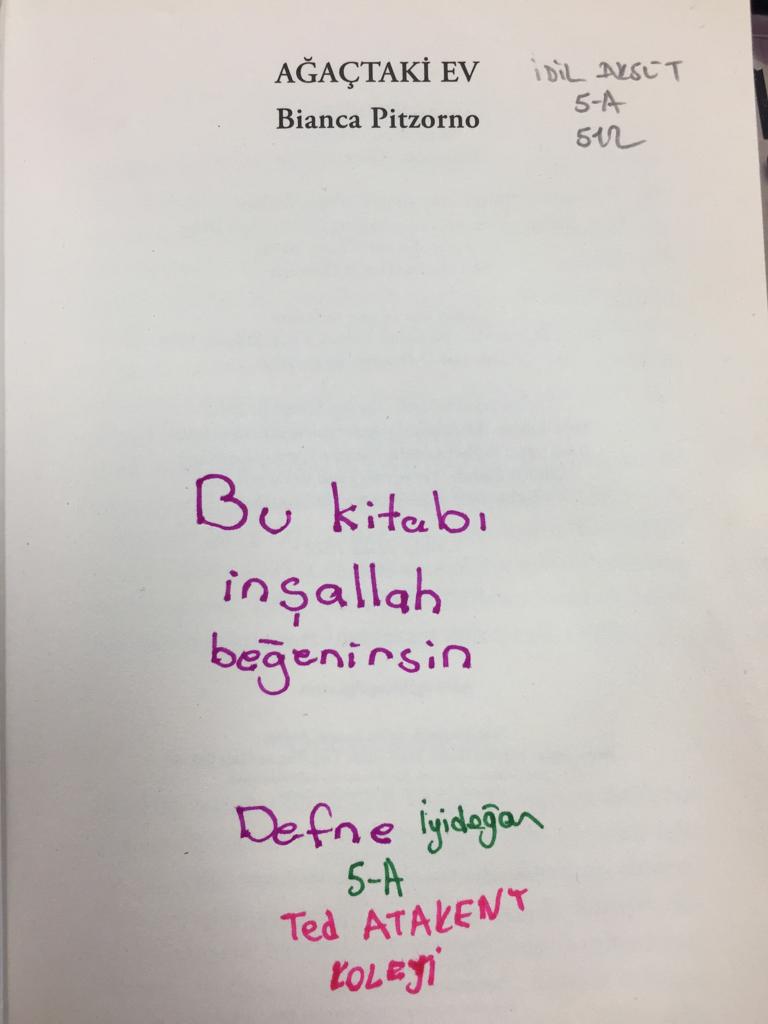 AĞAÇTAKİ EV
Bianca Pitzorno
İDİL AKSÜT
5-A
512
Bu kitabı
inşallah
beğenirsin
Defne İyidoğan
5-A
Ted ATAKENT
KOLEJİ